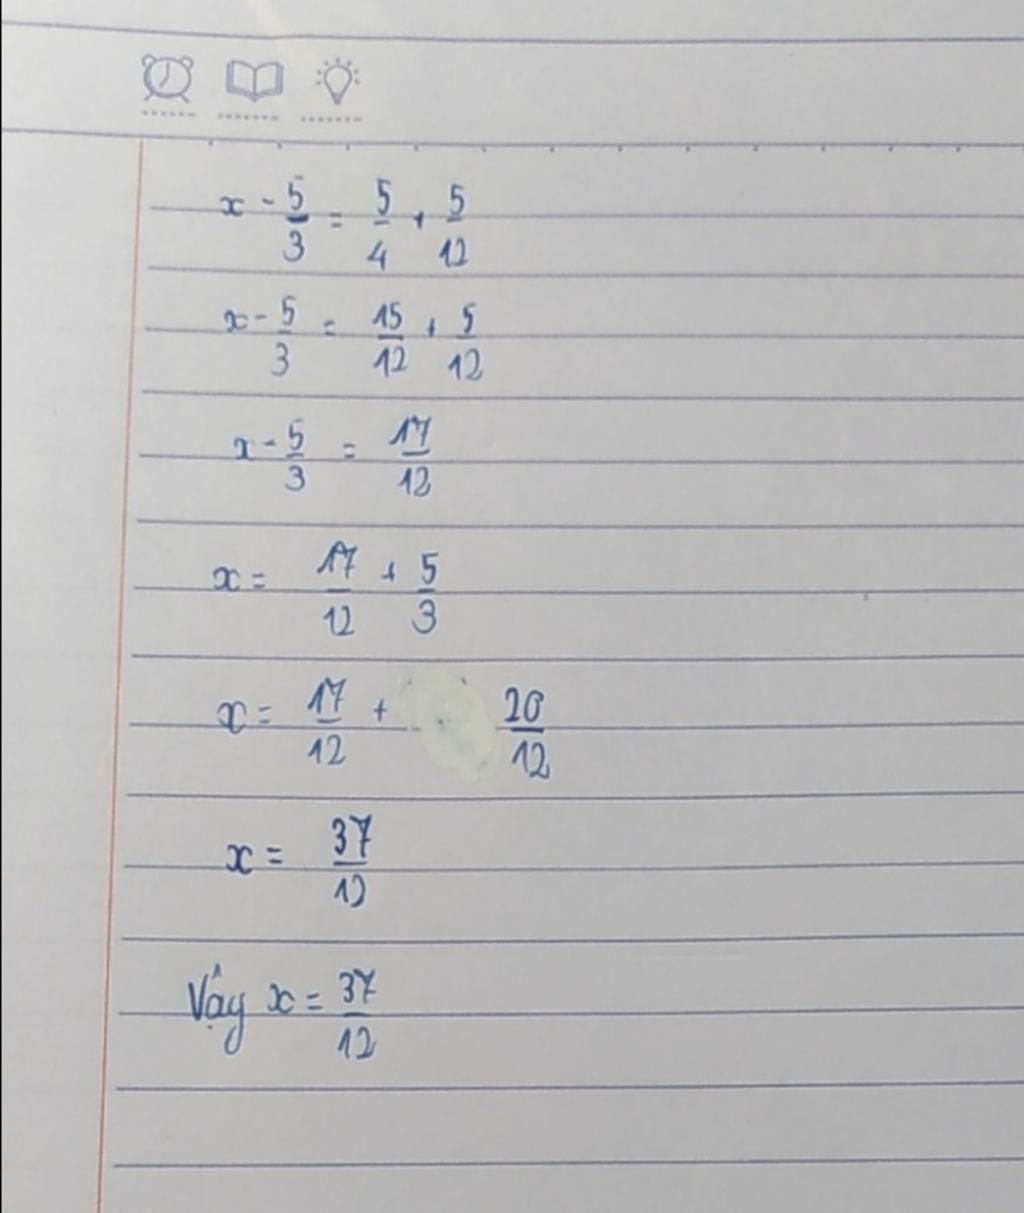 x - 5/3 = 5/4 + 5/12
x - 5/3 = 15/12 + 5/12
x - 5/3 = 17/12
x = 17/12 + 5/3
x = 17/12 + 20/12
x = 37/12
Vậy x = 37/12